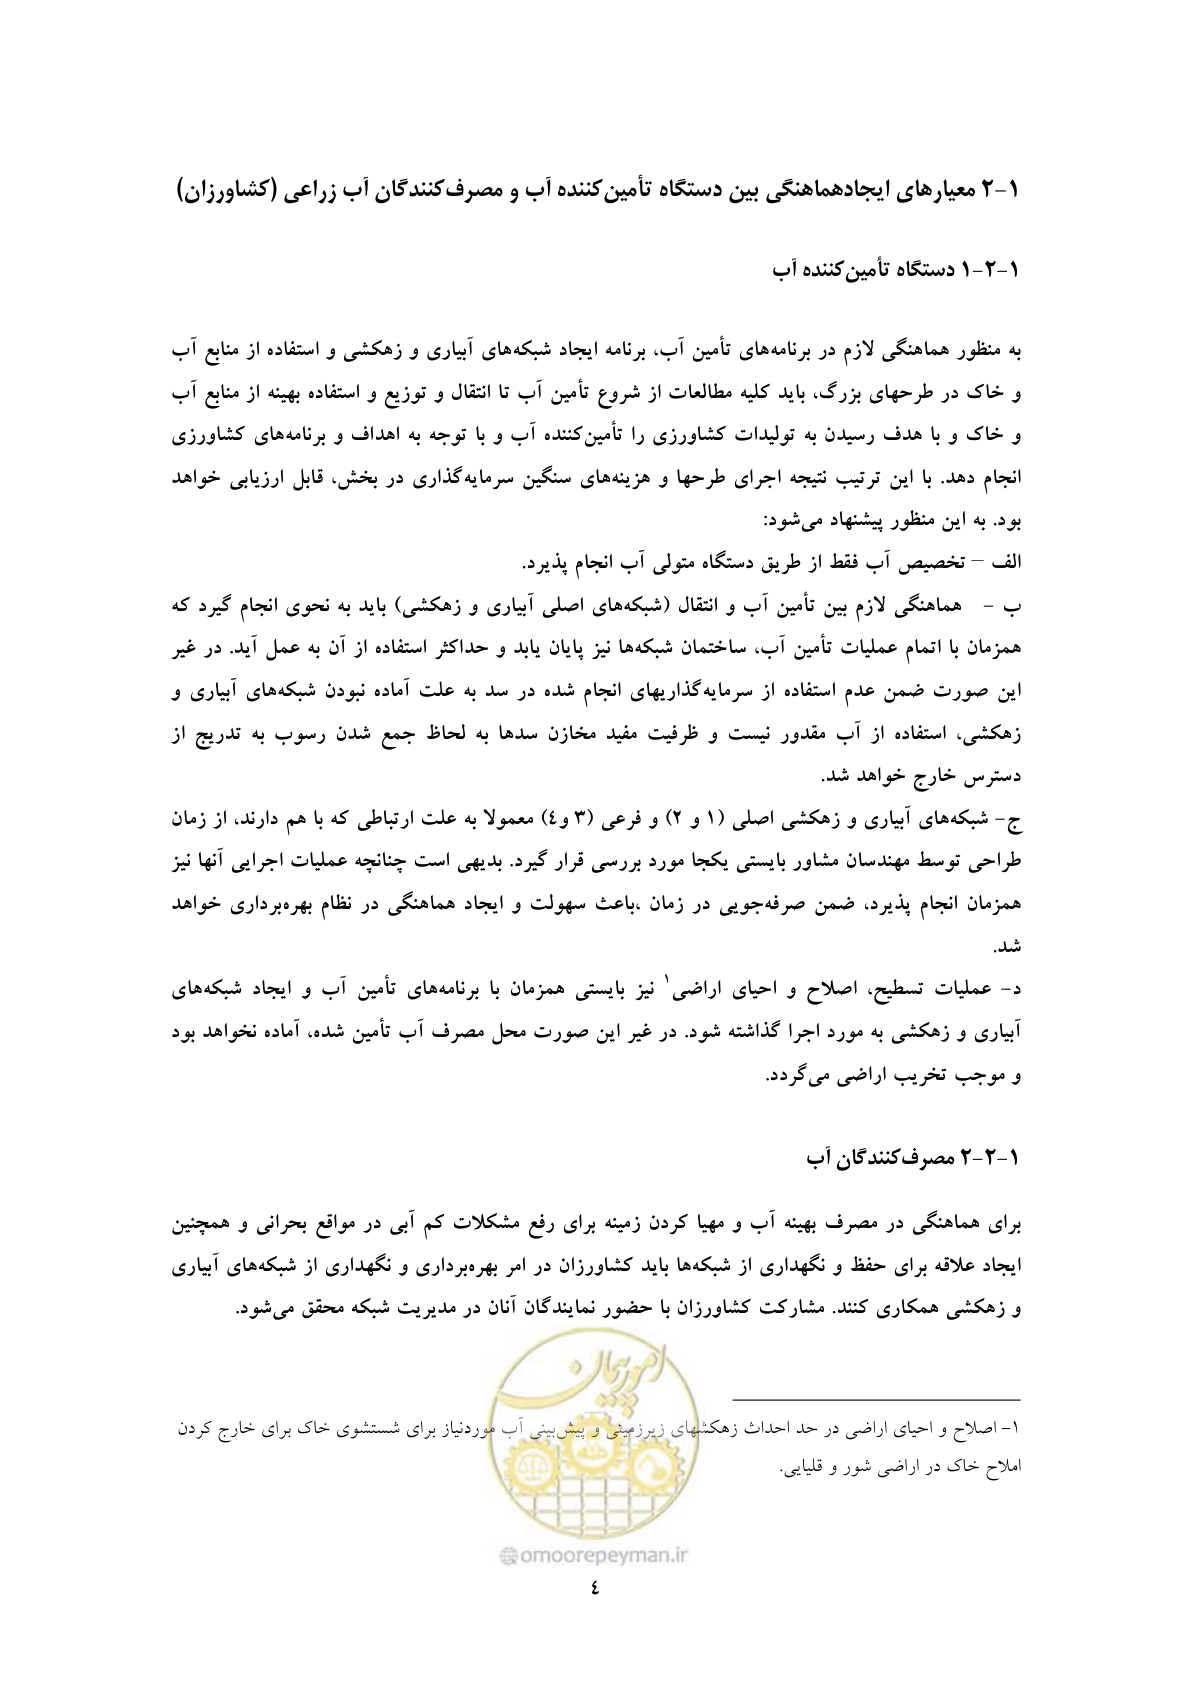 ۱-۲ معیارهای ایجادهماهنگی بین دستگاه تأمین‌کننده آب و مصرف‌کنندگان آب زراعی (کشاورزان)
۱-۲-۱ دستگاه تأمین‌کننده آب
به منظور هماهنگی لازم در برنامه‌های تأمین آب، برنامه ایجاد شبکه‌های آبیاری و زهکشی و استفاده از منابع آب
و خاک در طرحهای بزرگ، باید کلیه مطالعات از شروع تأمین آب تا انتقال و توزیع و استفاده بهینه از منابع آب
و خاک و با هدف رسیدن به تولیدات کشاورزی را تأمین‌کننده آب و با توجه به اهداف و برنامه‌های کشاورزی
انجام دهد. با این ترتیب نتیجه اجرای طرحها و هزینه‌های سنگین سرمایه‌گذاری در بخش، قابل ارزیابی خواهد
بود. به این منظور پیشنهاد می‌شود:
الف – تخصیص آب فقط از طریق دستگاه متولی آب انجام پذیرد.
ب - هماهنگی لازم بین تأمین آب و انتقال (شبکه‌های اصلی آبیاری و زهکشی) باید به نحوی انجام گیرد که
همزمان با اتمام عملیات تأمین آب، ساختمان شبکه‌ها نیز پایان یابد و حداکثر استفاده از آن به عمل آید. در غیر
این صورت ضمن عدم استفاده از سرمایه‌گذاریهای انجام شده در سد به علت آماده نبودن شبکه‌های آبیاری و
زهکشی، استفاده از آب مقدور نیست و ظرفیت مفید مخازن سدها به لحاظ جمع شدن رسوب به تدریج از
دسترس خارج خواهد شد.
ج- شبکه‌های آبیاری و زهکشی اصلی (۱ و ۲) و فرعی (۳ و٤) معمولا به علت ارتباطی که با هم دارند، از زمان
طراحی توسط مهندسان مشاور بایستی یکجا مورد بررسی قرار گیرد. بدیهی است چنانچه عملیات اجرایی آنها نیز
همزمان انجام پذیرد، ضمن صرفه‌جویی در زمان ،باعث سهولت و ایجاد هماهنگی در نظام بهره‌برداری خواهد
شد.
د- عملیات تسطیح، اصلاح و احیای اراضی۱ نیز بایستی همزمان با برنامه‌های تأمین آب و ایجاد شبکه‌های
آبیاری و زهکشی به مورد اجرا گذاشته شود. در غیر این صورت محل مصرف آب تأمین شده، آماده نخواهد بود
و موجب تخریب اراضی می‌گردد.
۱-۲-۲ مصرف‌کنندگان آب
برای هماهنگی در مصرف بهینه آب و مهیا کردن زمینه برای رفع مشکلات کم آبی در مواقع بحرانی و همچنین
ایجاد علاقه برای حفظ و نگهداری از شبکه‌ها باید کشاورزان در امر بهره‌برداری و نگهداری از شبکه‌های آبیاری
و زهکشی همکاری کنند. مشارکت کشاورزان با حضور نمایندگان آنان در مدیریت شبکه محقق می‌شود.
امور پیمان
۱- اصلاح و احیای اراضی در حد احداث زهکشهای زیرزمینی و پیش‌بینی آب موردنیاز برای شستشوی خاک برای خارج کردن
املاح خاک در اراضی شور و قلیایی.
omoorepeyman.ir
٤